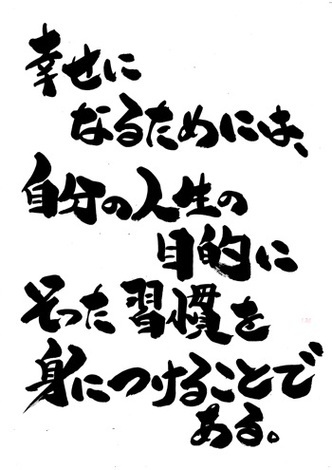 幸せに
なるためには、
自分の人生の
目的に
そった習慣を
身につけることで
ある。